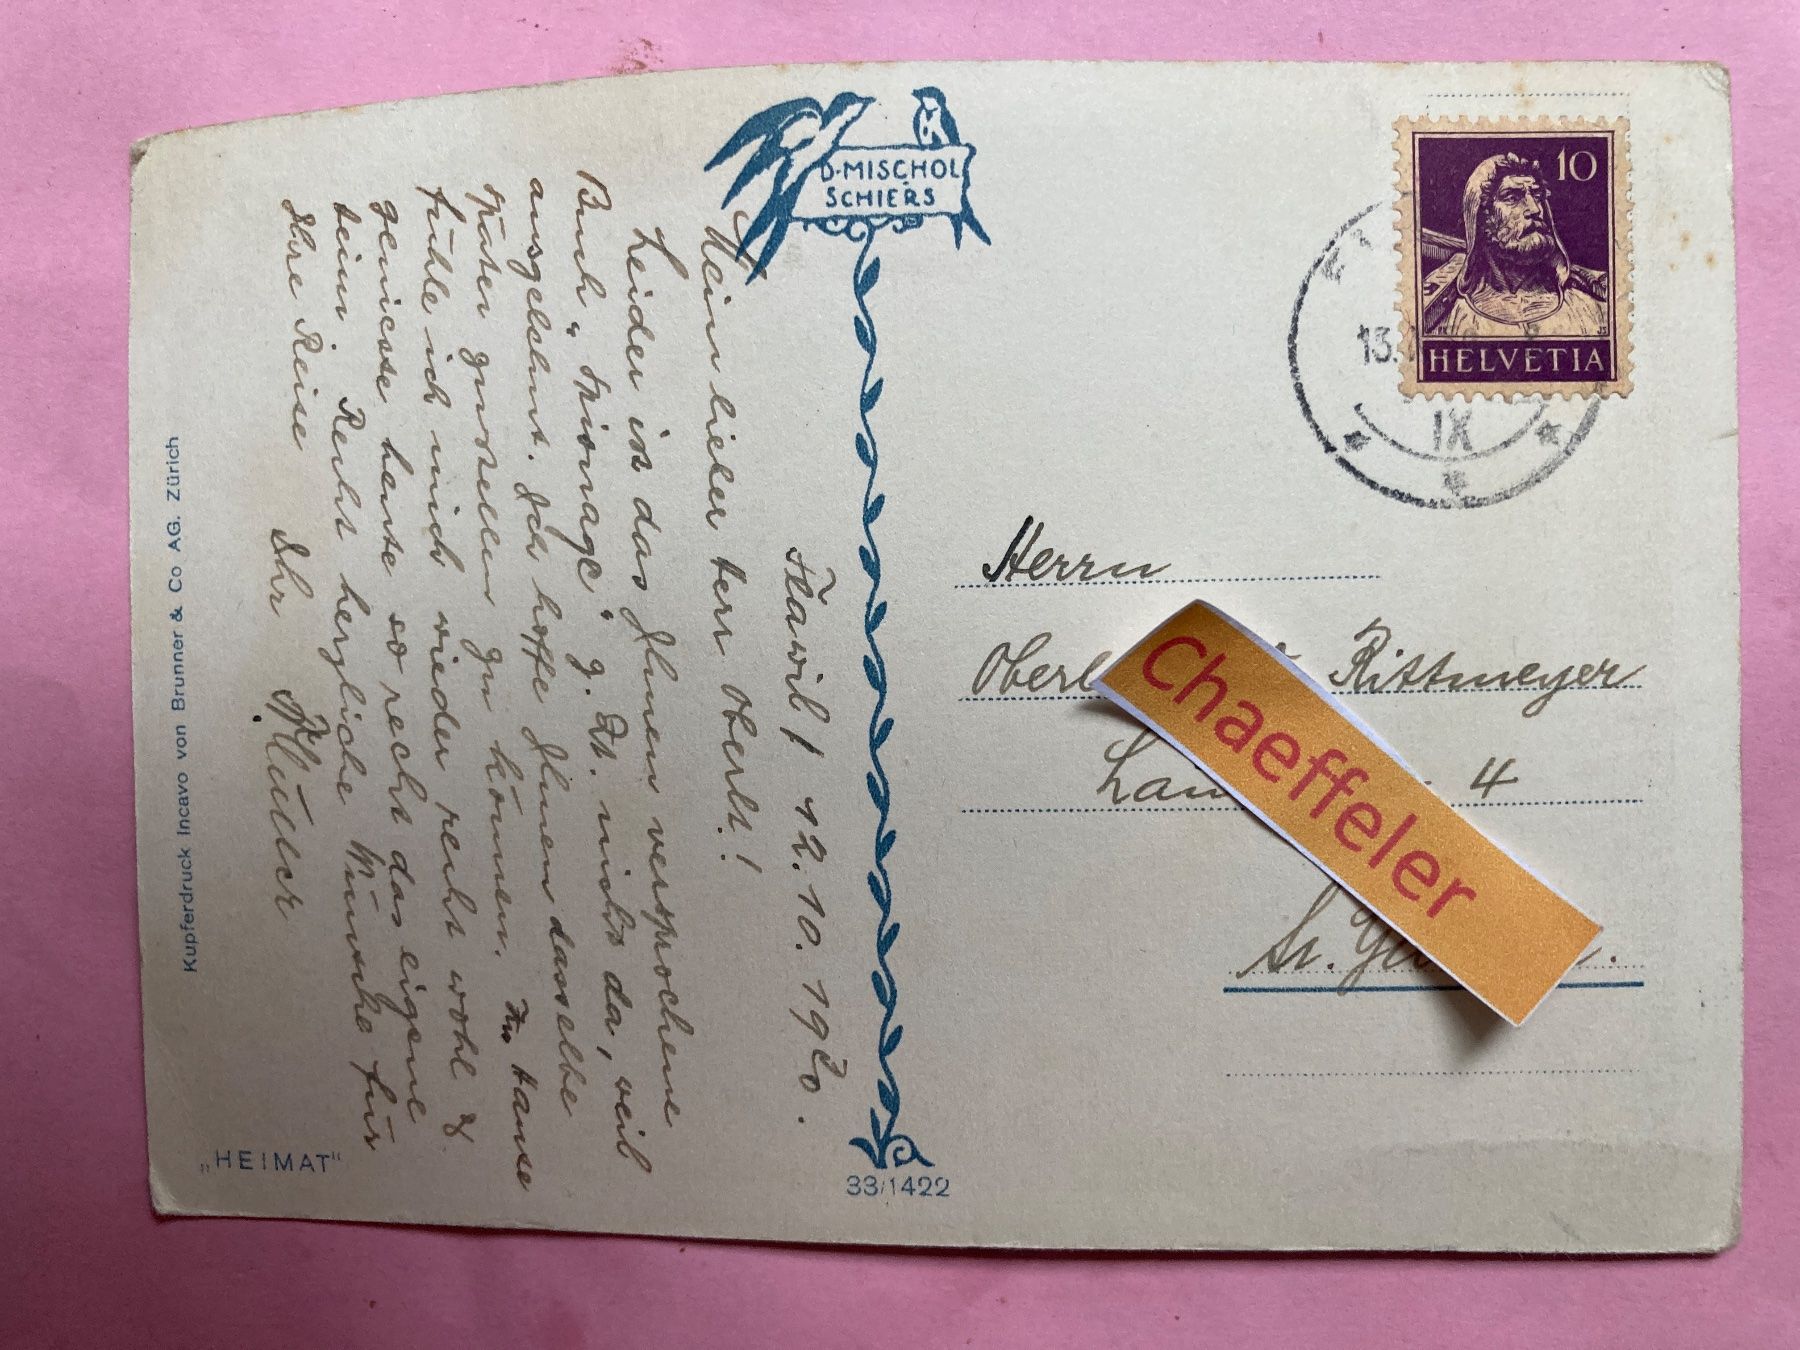 D. MISCHOL
SCHIERS
Flawil, 12.10.1920.
Mein lieber Herr Oberlt!
Leider ist das Ihnen versprochene
Buch "Spionage" z. Zt. nicht da, weil
ausgelehnt. Ich hoffe Ihnen dasselbe
später zustellen zu können. Zu Hause
fühle ich mich wieder recht wohl &
geniesse heute so recht das eigene
Heim. Recht herzliche Wünsche für
Ihre Reise
Ihr Müller
Kupferdruck Incavo von Brunner & Co AG. Zürich
„HEIMAT"
33/1422
10
HELVETIA
13.
IX
Herrn
Oberl Rittmeyer
4
St.
Chaeffeler